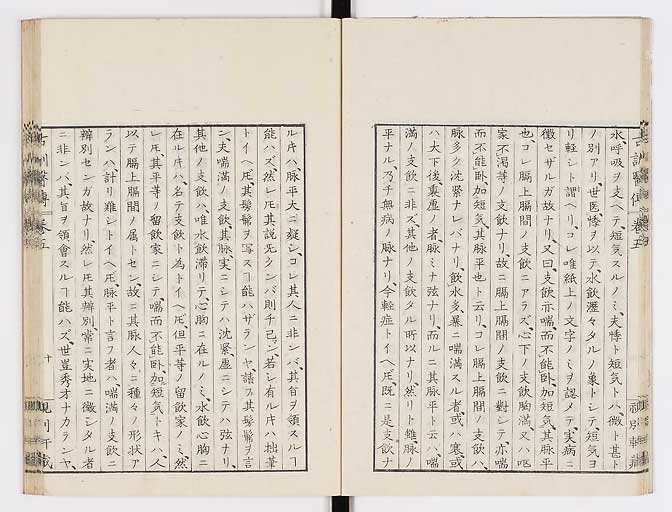 水、呼吸ヲ支ヘテ、短気スルノミ、夫悸ト短気トハ、微ト甚ト
ノ別アリ、世医、悸ヲ以テ、水飲瀝々タルノ象トシテ、短気ヨ
リ軽シト謂ヘリ、コレ唯紙上ノ文字ノミヲ認メテ、実病ニ
徴セザルガ故ナリ、又曰支飲亦喘而不能臥、加短気、其脉平
也、コレ膈上膈間ノ支飲ニアラズ、心下ノ支飲、胸満、又ハ呕
家、不渇等ノ支飲ナリ、故ニ膈上膈間ノ支飲ニ對シテ、亦喘
而不能臥、加短気、其脉平也ト云リ、コレ膈上膈間ノ支飲ハ、
脉多ク沈緊ナレバナリ、飲水多、暴ニ喘満スル者、或ハ寒、或
ハ大下後裏虚ノ者、脉ミナ弦ナリ、而ルニ其脉平ト云ハ、喘
満ノ支飲ニ非ズ、其他ノ支飲タル所以ナリ、然リト雖、脉ノ
平ナル、乃チ無病ノ脉ナリ、今軽症トイヘ𪜈、既ニ是支飲ナ
ル片ハ、脉平大ニ疑シ、コレ其人ニ非ンバ、其旨ヲ領スルヿ
能ハズ、然レ𪜈其説无クンバ則チ已ン、若シ有ル片ハ、拙筆
トイヘ𪜈、其髣髴ヲ写スヿ能ハザランヤ、請フ其髣髴ヲ言
ン、夫喘満ノ支飲、其脉、実ニシテハ沈緊、虚ニシテハ弦ナリ、
其他ノ支飲ハ、唯水飲滞リテ、心胸ニ在ルノミ、水飲心胸ニ
在ル片ハ、名テ支飲ト為トイヘ𪜈、但平等ノ留飲家ノミ、然
レ𪜈、其平等ノ留飲家ニシテ、喘而不能臥、加短気トキハ、人
以テ膈上膈間ノ属トセン、故ニ其脉人々ニ種々ノ形状ア
ランハ計リ難シトイヘ𪜈、脉平ト言フ者ハ、喘満ノ支飲ニ
辨別センガ故ナリ、然レ𪜈其辨別、常ニ実地ニ徴シタル者
ニ非ンバ、其旨ヲ領會スルヿ能ハズ、世豈秀才ナカランヤ、
十